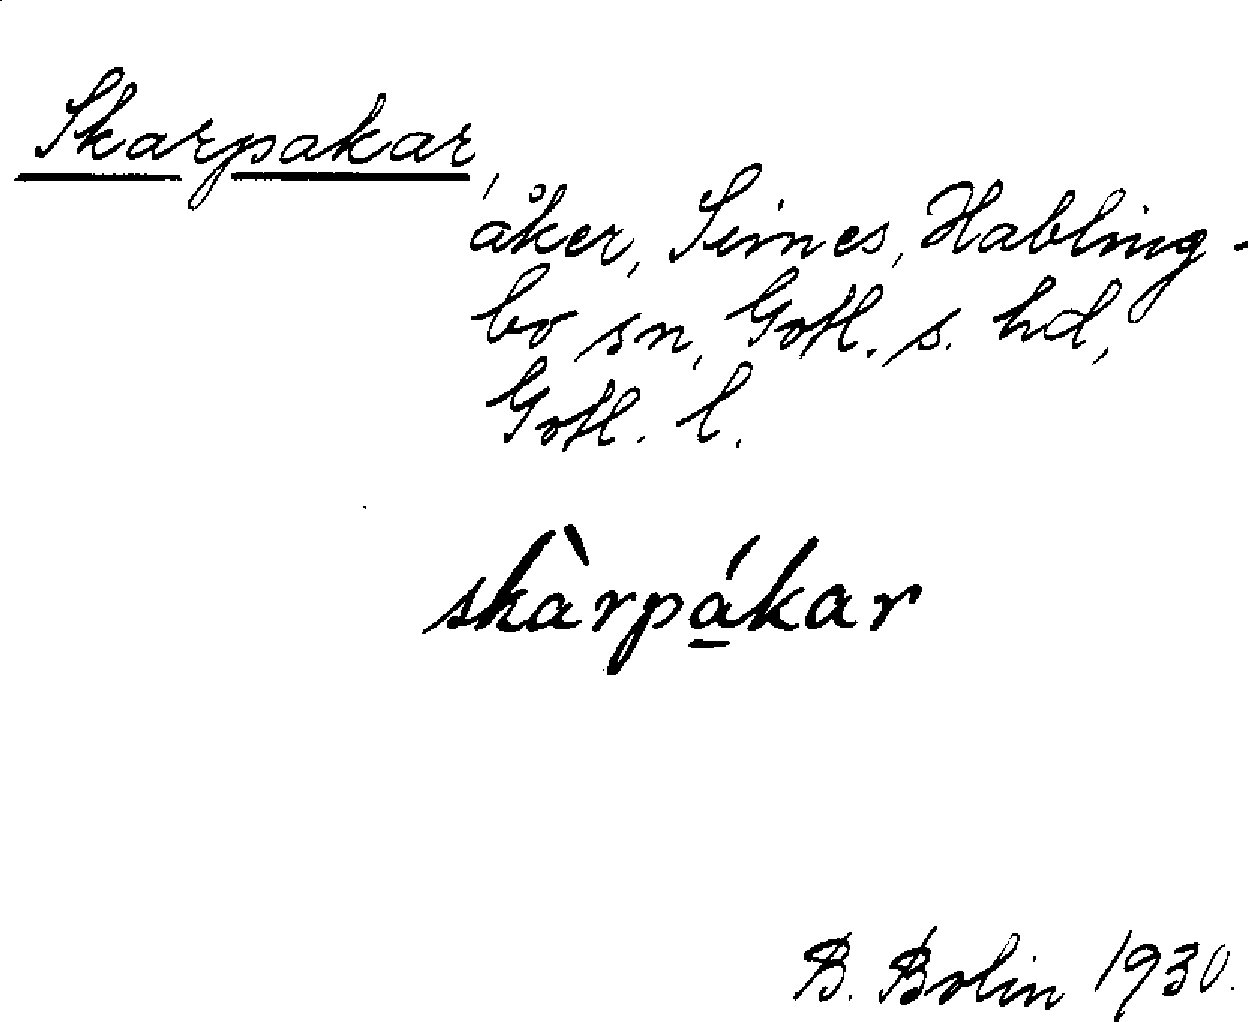 Skarpakar,
åker, Simes, Habling-
bo sn, Gotl. s. hd,
Gotl. l.
skàrpá̱kar
B. Bolin 1930.